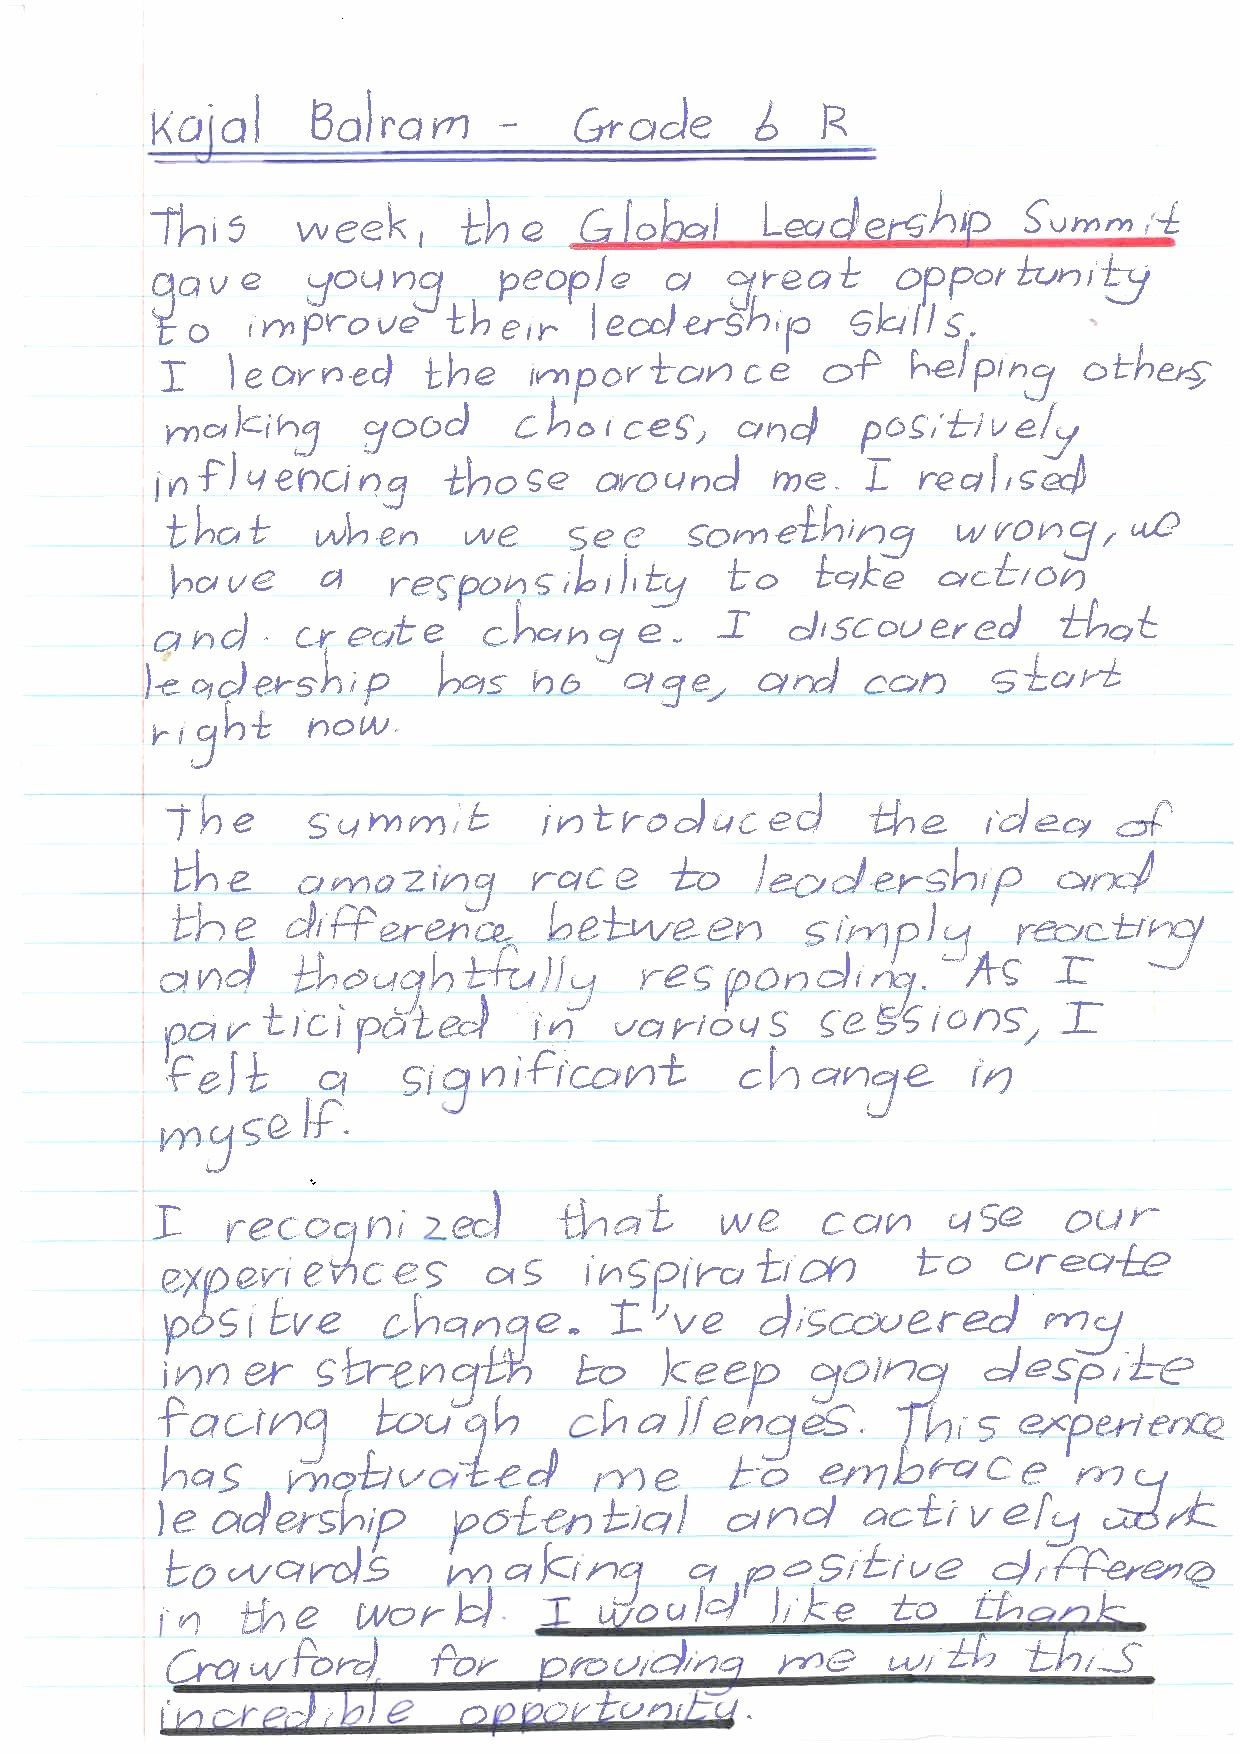 Kajal Balram - Grade 6 R
This week, the Global Leadership Summit
gave young people a great opportunity
to improve their leadership skills.
I learned the importance of helping others,
making good choices, and positively
influencing those around me. I realised
that when we see something wrong, we
have a responsibility to take action
and create change. I discovered that
leadership has no age, and can start
right now.
The summit introduced the idea of
the amazing race to leadership and
the difference between simply reacting
and thoughtfully responding. As I
participated in various sessions, I
felt a significant change in
myself.
I recognized that we can use our
experiences as inspiration to create
positve change. I've discovered my
inner strength to keep going despite
facing tough challenges. This experience
has motivated me to embrace my
leadership potential and actively work
towards making a positive difference
in the world. I would like to thank
Crawford for providing me with this
incredible opportunity.